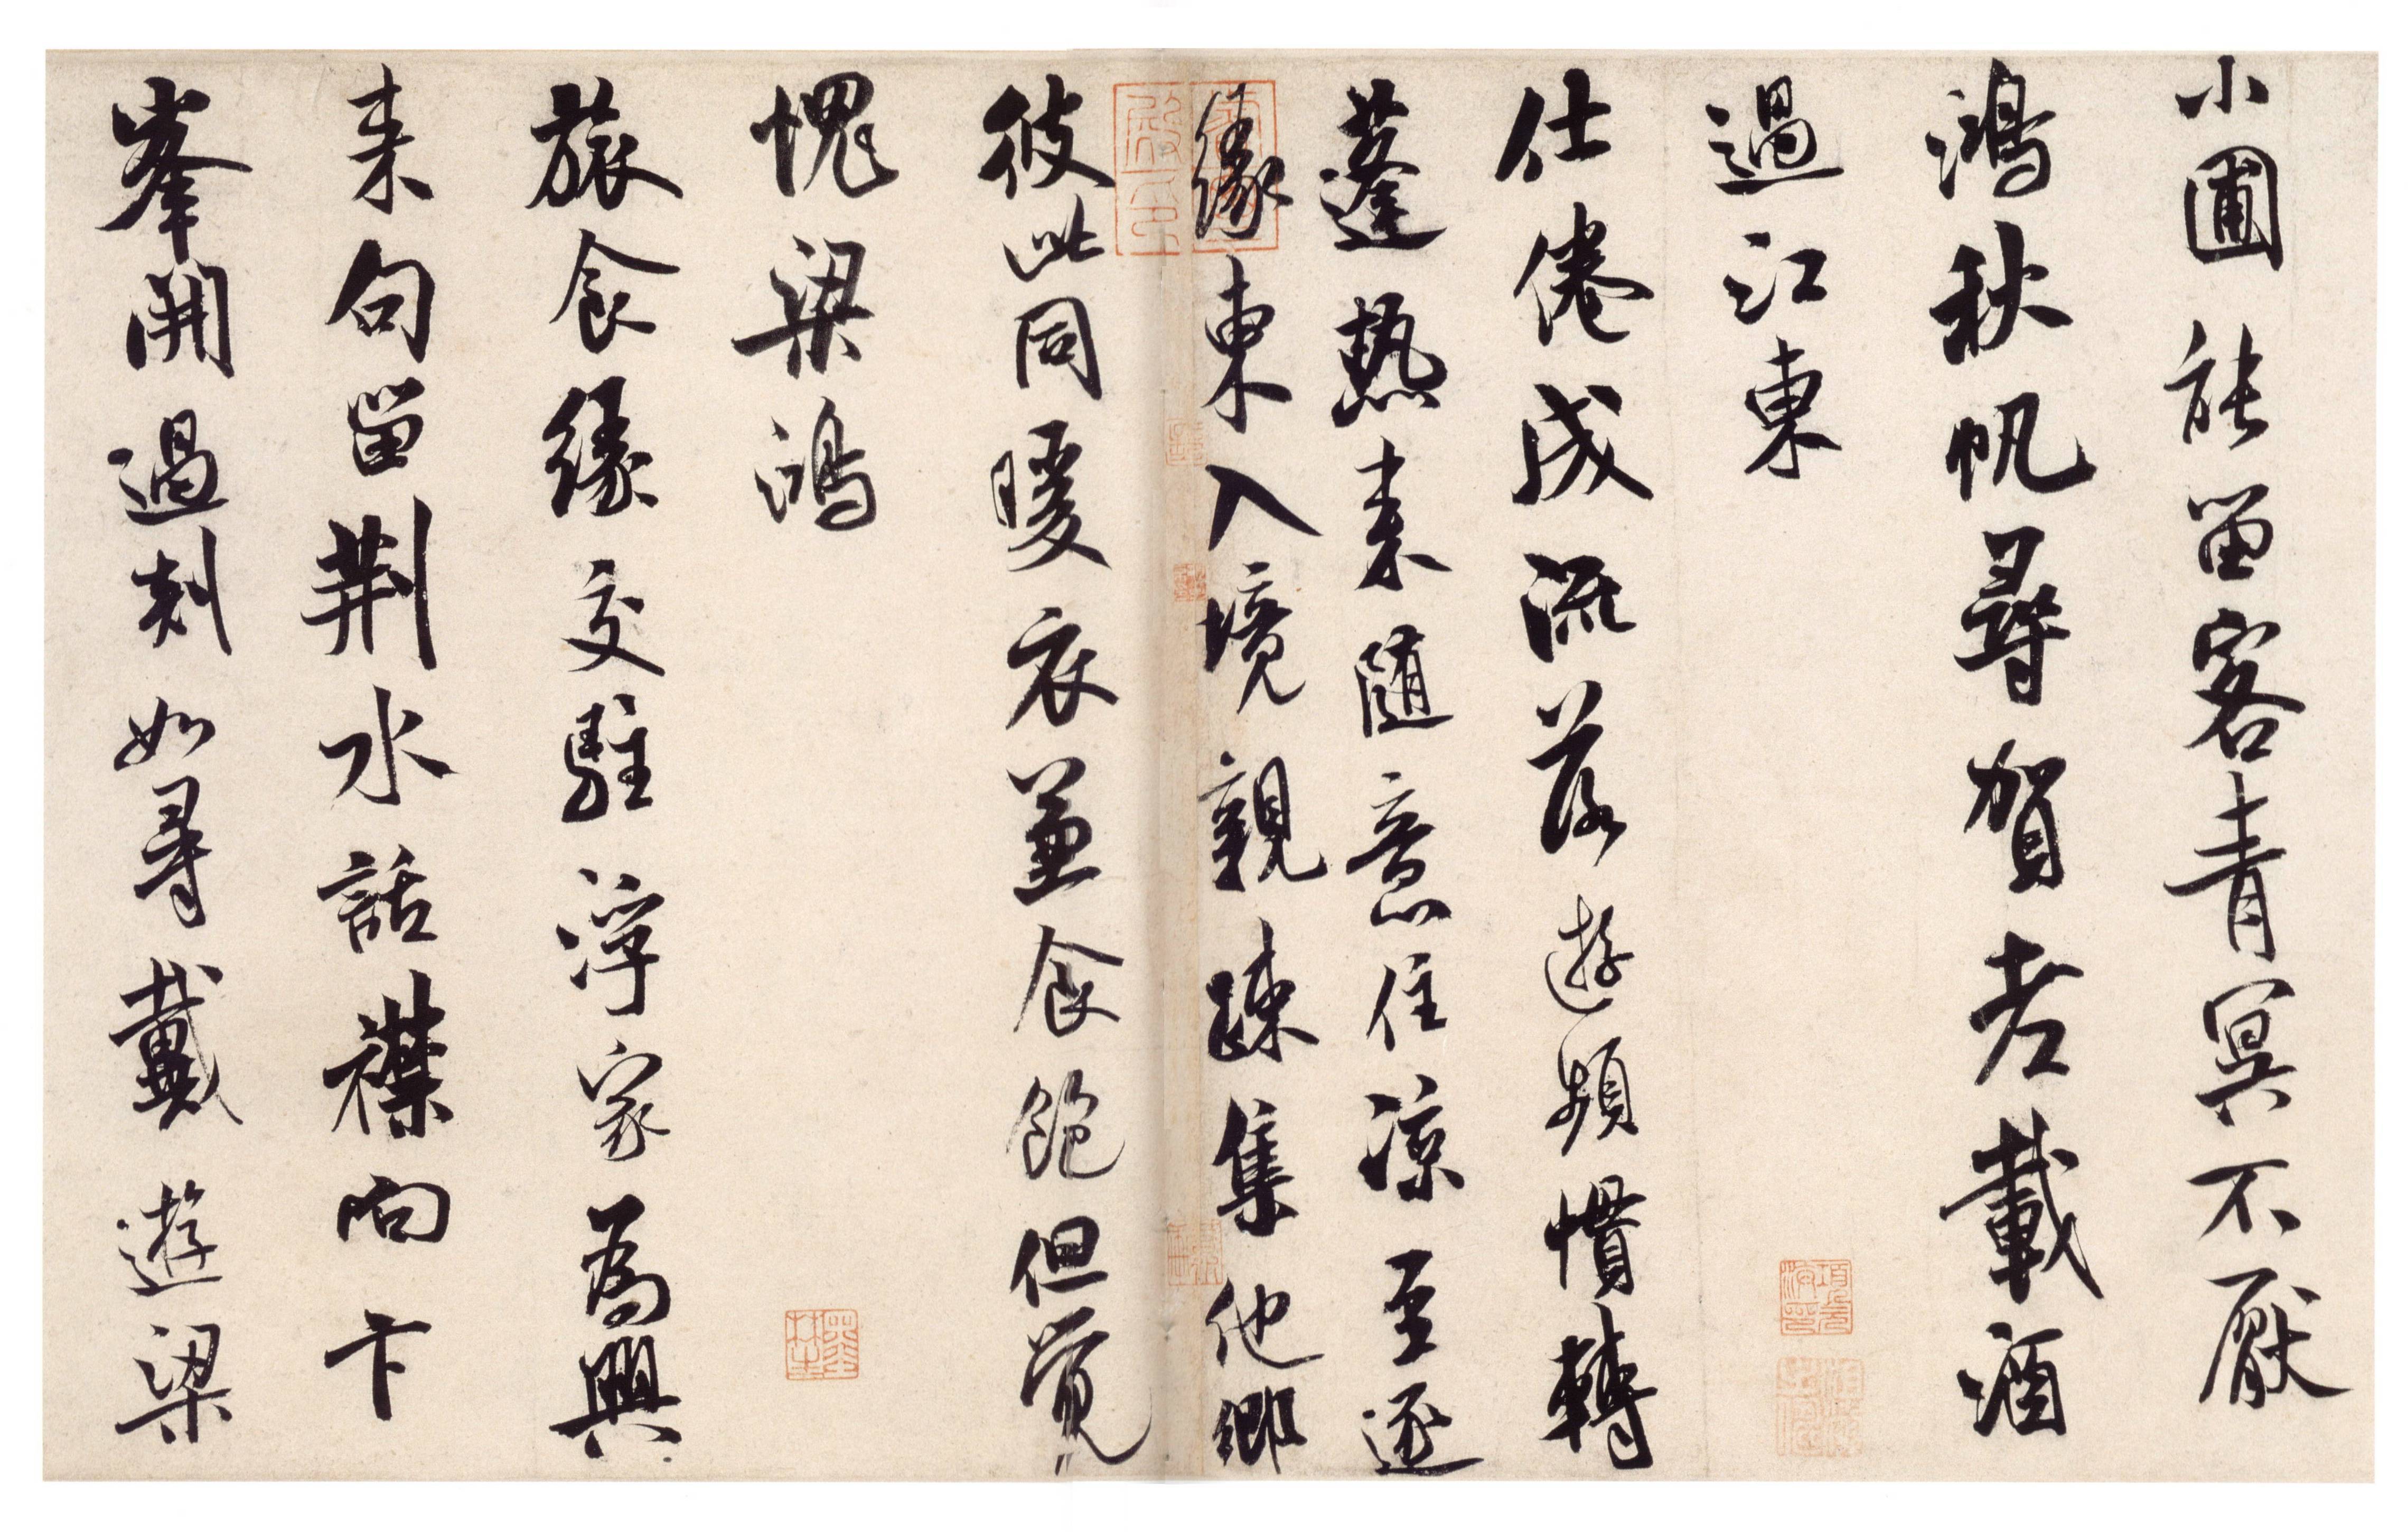 小圃能留客青冥不厭
鴻秋帆尋賀老載酒
過江東
仕倦成流落遊頻慣轉
蓬熱来隨意住凉至逐
緣東入境親踈集他鄉
彼此同暖衣兼食飽但覺
愧梁鴻
旅食緣交駐浮家為興
来句留荊水話襟向卞
峯開過剡如尋戴遊梁